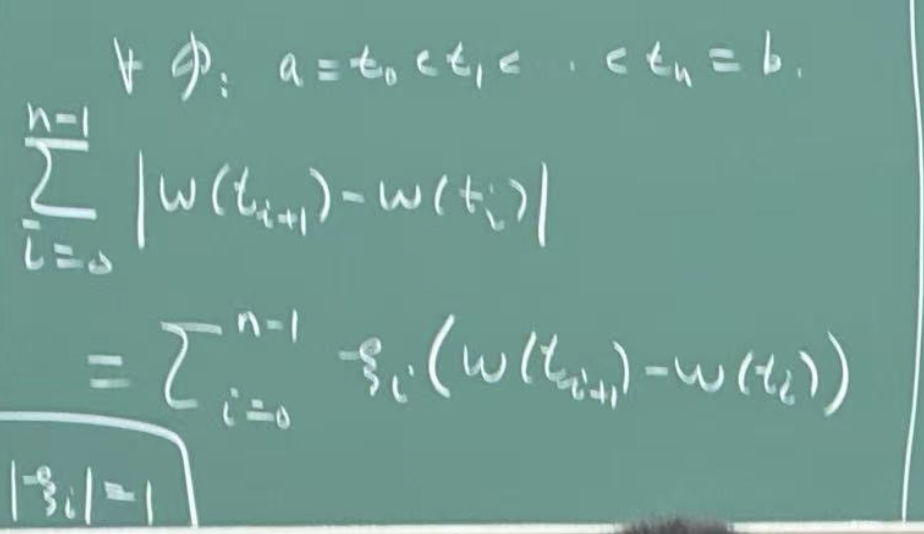 ∀ 𝒫: a = t₀ < t₁ < ·· < tₙ = b.
∑_{i=0}^{n-1} |w(t_{i+1}) - w(t_i)|
= ∑_{i=0}^{n-1} ξ_i (w(t_{i+1}) - w(t_i))
|ξ_i| = 1